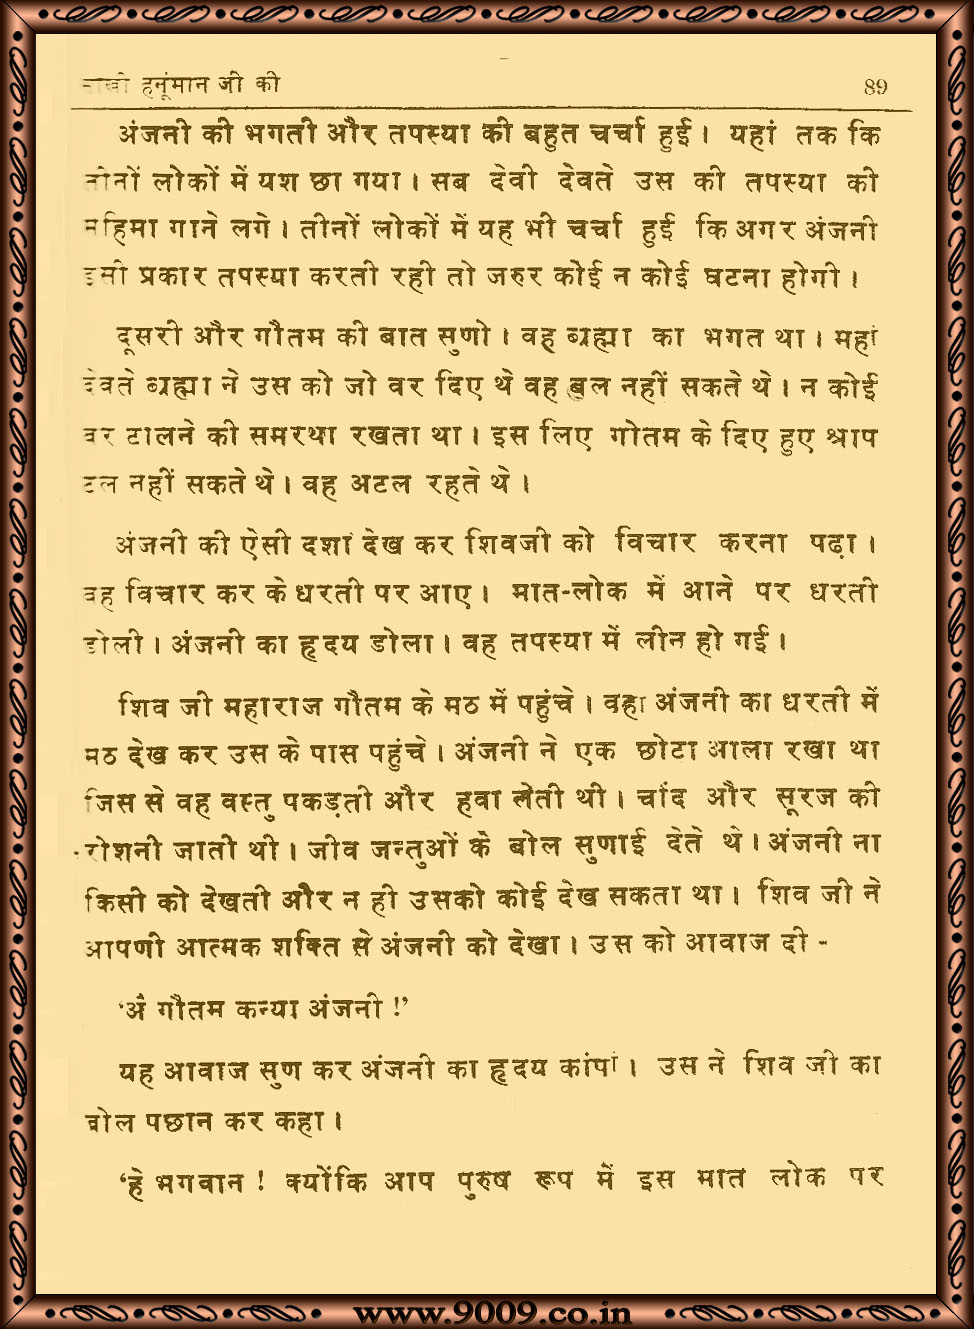 साखी हनूंमान जी की 89
अंजनी की भगती और तपस्या की बहुत चर्चा हुई। यहां तक कि
तीनों लोकों में यश छा गया। सब देवी देवते उस की तपस्या की
महिमा गाने लगे। तीनों लोकों में यह भी चर्चा हुई कि अगर अंजनी
इसी प्रकार तपस्या करती रही तो जरुर कोई न कोई घटना होगी।
दूसरी और गौतम की बात सुणो। वह ब्रह्मा का भगत था। महां
देवते ब्रह्मा ने उस को जो वर दिए थे वह टल नहीं सकते थे। न कोई
वर टालने की समरथा रखता था। इस लिए गोतम के दिए हुए श्राप
टल नहीं सकते थे। वह अटल रहते थे।
अंजनी की ऐसी दशां देख कर शिवजी को विचार करना पढ़ा।
वह विचार कर के धरती पर आए। मात-लोक में आने पर धरती
डोली। अंजनी का हृदय डोला। वह तपस्या में लीन हो गई।
शिव जी महाराज गौतम के मठ में पहुंचे। वहा अंजनी का धरती में
मठ देख कर उस के पास पहुंचे। अंजनी ने एक छोटा आला रखा था
जिस से वह वस्तु पकड़ती और हवा लेती थी। चांद और सूरज की
रोशनी जाती थी। जीव जन्तुओं के बोल सुणाई देते थे। अंजनी ना
किसी को देखती और न ही उसको कोई देख सकता था। शिव जी ने
आपणी आत्मक शक्ति से अंजनी को देखा। उस को आवाज दी -
‘अं गौतम कन्या अंजनी !’
यह आवाज सुण कर अंजनी का हृदय कांपां। उस ने शिव जी का
बोल पछान कर कहा।
‘हे भगवान ! क्योंकि आप पुरुष रूप में इस मात लोक पर
www.9009.co.in